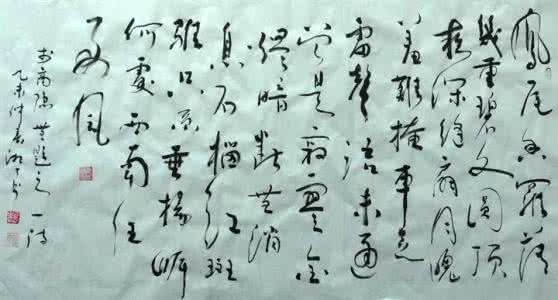 鳳尾香羅薄
幾重碧文圓頂
夜深縫扇月魄
羞難掩車走
雷聲語未通
曾是寂寥金
燼暗斷無消
息石榴紅斑
騅只系垂楊岸
何處西南任
好風
李商隱無題之一詩
乙未仲春